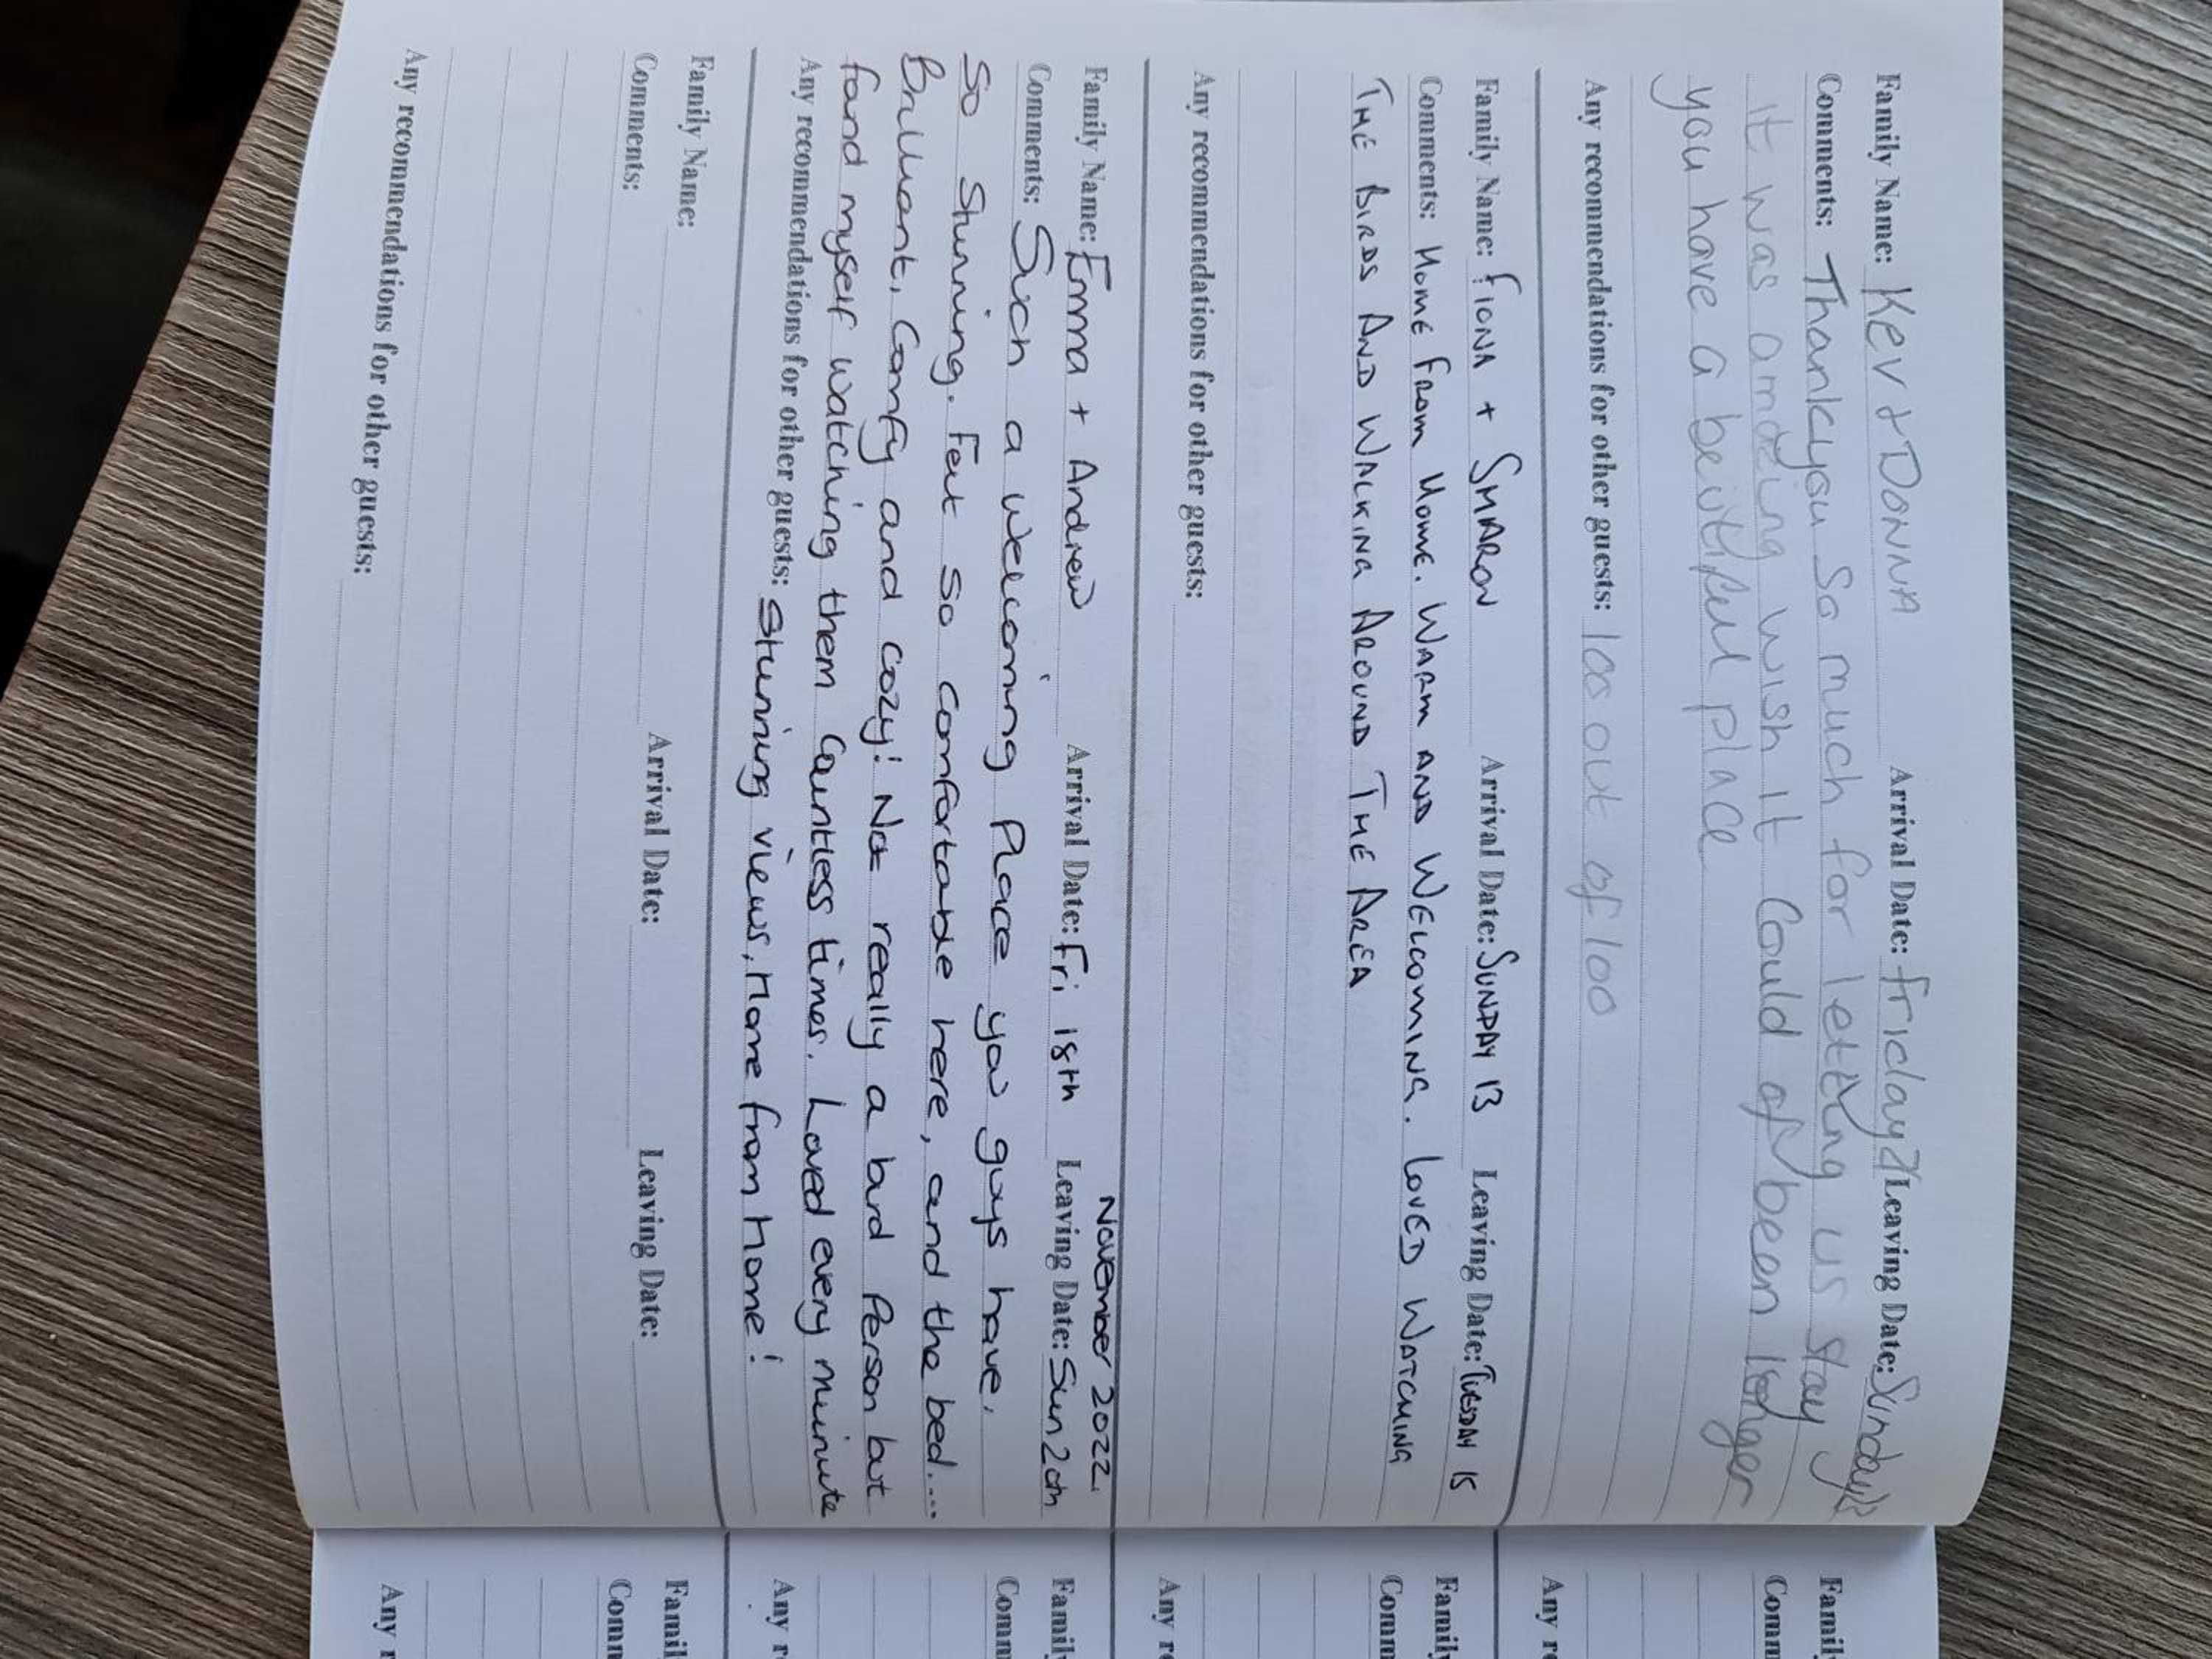 Family Name: Kev & DONNA Arrival Date: friday Leaving Date: Sunday
Comments: Thankyou so much for letting us stay
it was amazing wish it could of been longer
you have a beutiful place
Any recommendations for other guests: 100 out of 100
Family Name: FIONA + SHARON Arrival Date: SUNDAY 13 Leaving Date: TUESDAY 15
Comments: HOME FROM HOME. WARM AND WELCOMING. LOVED WATCHING
THE BIRDS AND WALKING AROUND THE AREA
Any recommendations for other guests:
November 2022.
Family Name: Emma + Andrew Arrival Date: Fri 18th Leaving Date: Sun 20th
Comments: Such a welcoming Place you guys have,
So Stunning. Felt so comfortable here, and the bed....
Brilliant, Comfy and cozy! Not really a bird Person but
found myself watching them countless times. Loved every minute
Any recommendations for other guests: Stunning views, Home from Home!
Family Name: Arrival Date: Leaving Date:
Comments:
Any recommendations for other guests:
Family
Comm
Any re
Family
Comm
Any re
Family
Comm
Any re
Famil
Comm
Any r